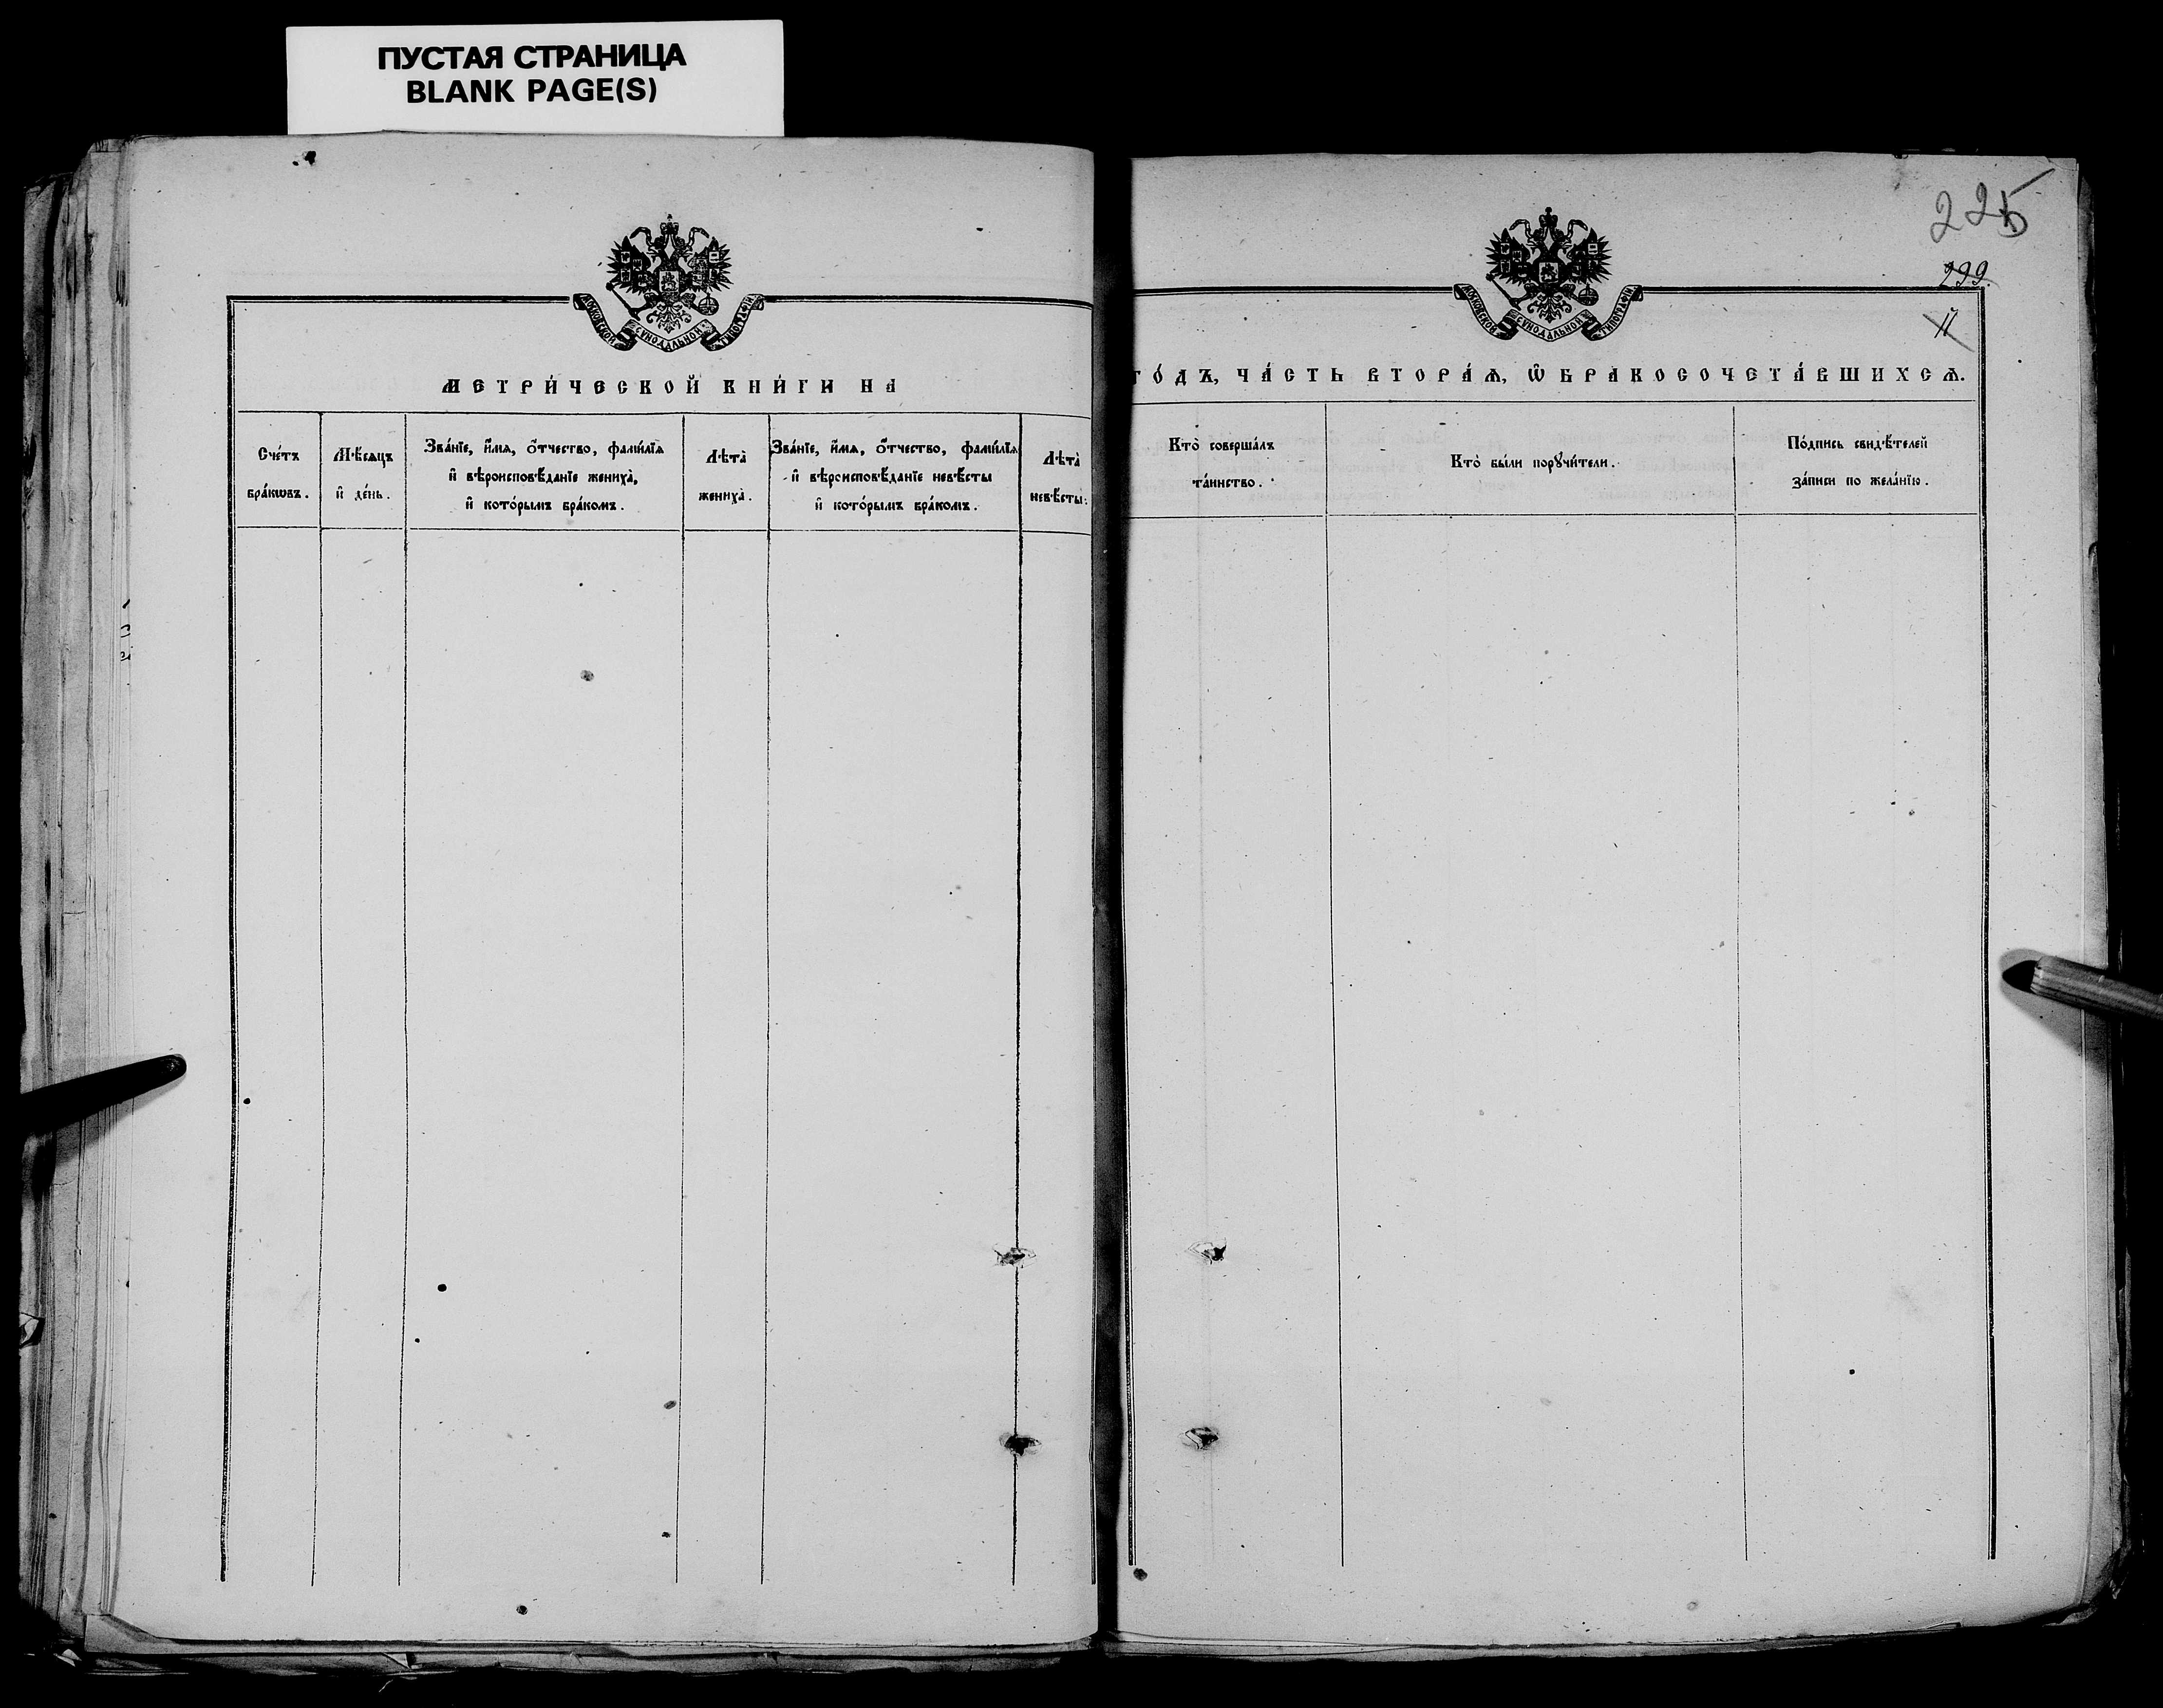 ПУСТАЯ СТРАНИЦА
BLANK PAGE(S)
МОСКОВСКОЙ СѴНОДАЛЬНОЙ ТИПОГРАФІИ
МЕТРИ́ЧЕСКОЙ КНИ́ГИ НА
Сче́тъ
бра́кѡвъ.
Мѣ́сяцъ
и҆ де́нь.
Зва́нїе, и҆́мѧ, ѻ҆́тчество, фами́лїѧ
и҆ вѣроисповѣ́данїе жениха̀,
и҆ кото́рымъ бра́комъ.
Лѣта̀
жениха̀.
Зва́нїе, и҆́мѧ, ѻ҆́тчество, фами́лїѧ
и҆ вѣроисповѣ́данїе невѣ́сты
и҆ кото́рымъ бра́комъ.
Лѣта̀
невѣ́сты.
225
299.
11
МОСКОВСКОЙ СѴНОДАЛЬНОЙ ТИПОГРАФІИ
ГО́ДЪ, ЧА́СТЬ ВТОРА́Ѧ, Ѽ БРАКОСОЧЕТА́ВШИХСѦ.
Кто̀ соверша́лъ
та́инство.
Кто̀ бы́ли порꙋчи́тели.
По́дпись свидѣ́телей
за́писи по жела́нїю.